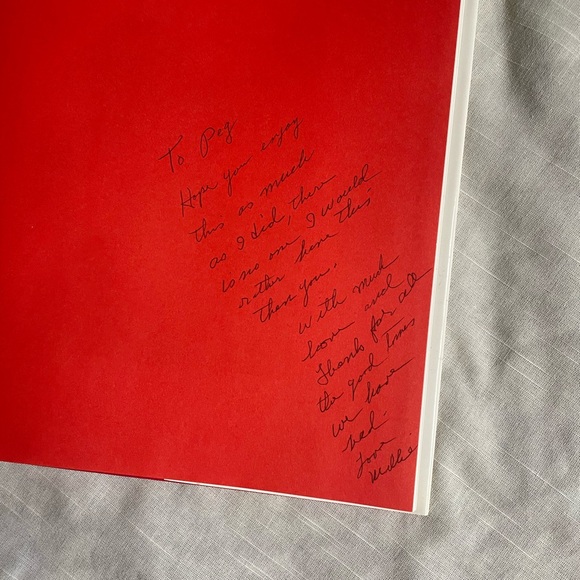 To Peg
Hope you enjoy
this as much
as I did, there
is no one I would
rather have this
than you.
With much
love and
Thanks for all
the good Times
we have
had.
Love
Millie